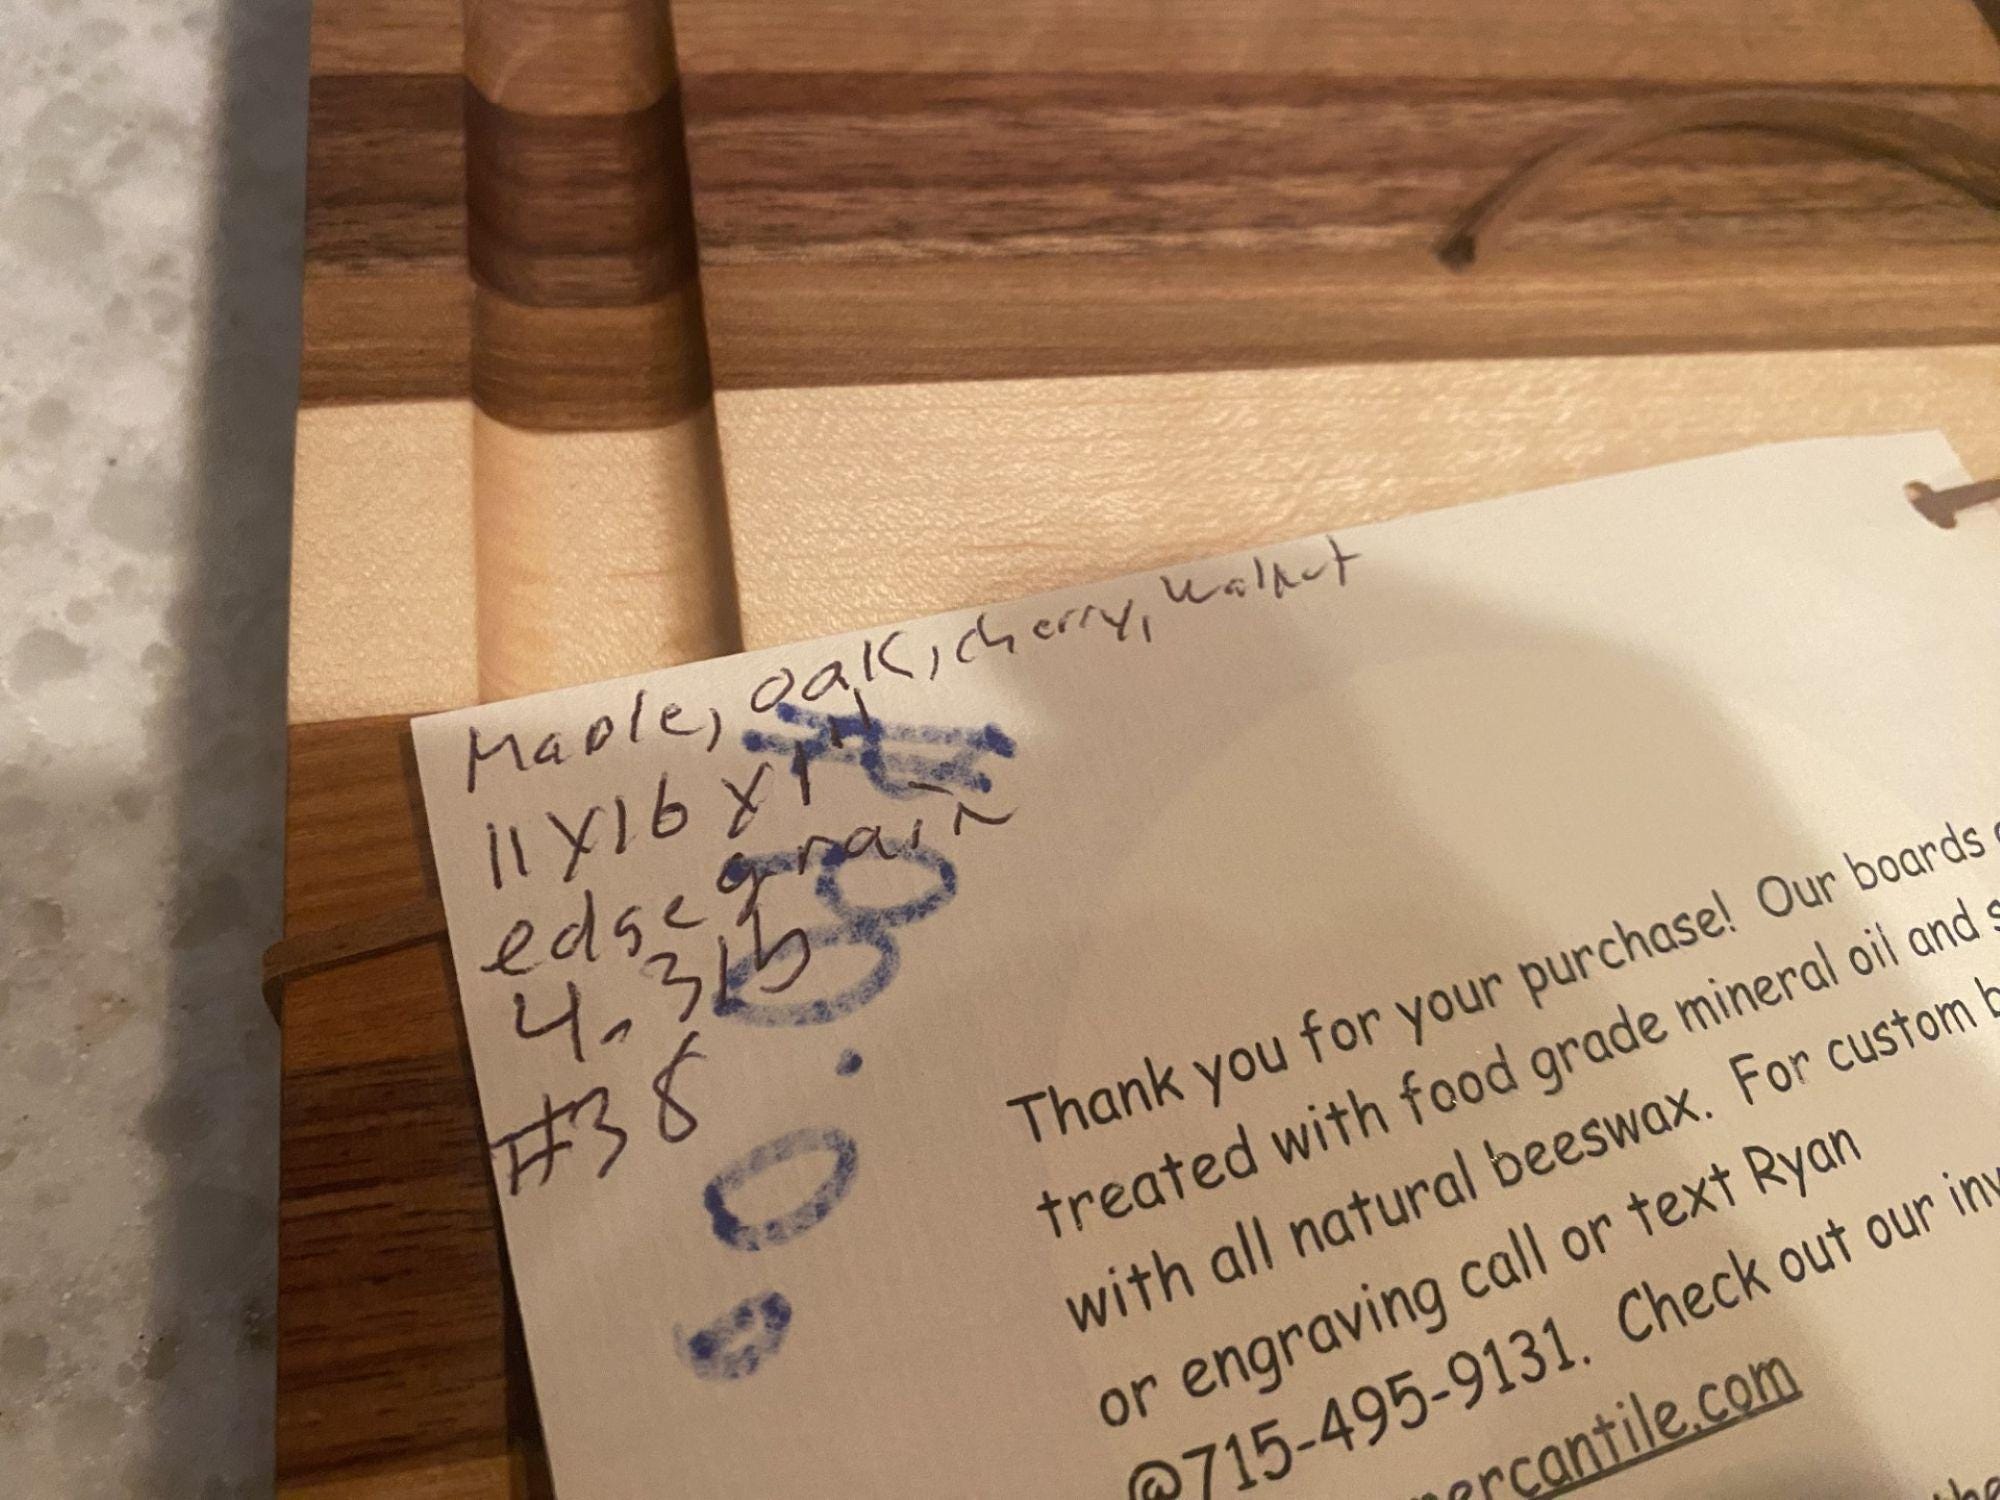 Maple, oak, cherry, walnut
11x16x1"
edge grain
4.3lb
#38
Thank you for your purchase! Our boards
treated with food grade mineral oil and
with all natural beeswax. For custom
or engraving call or text Ryan
@715-495-9131. Check out our
ercantile.com